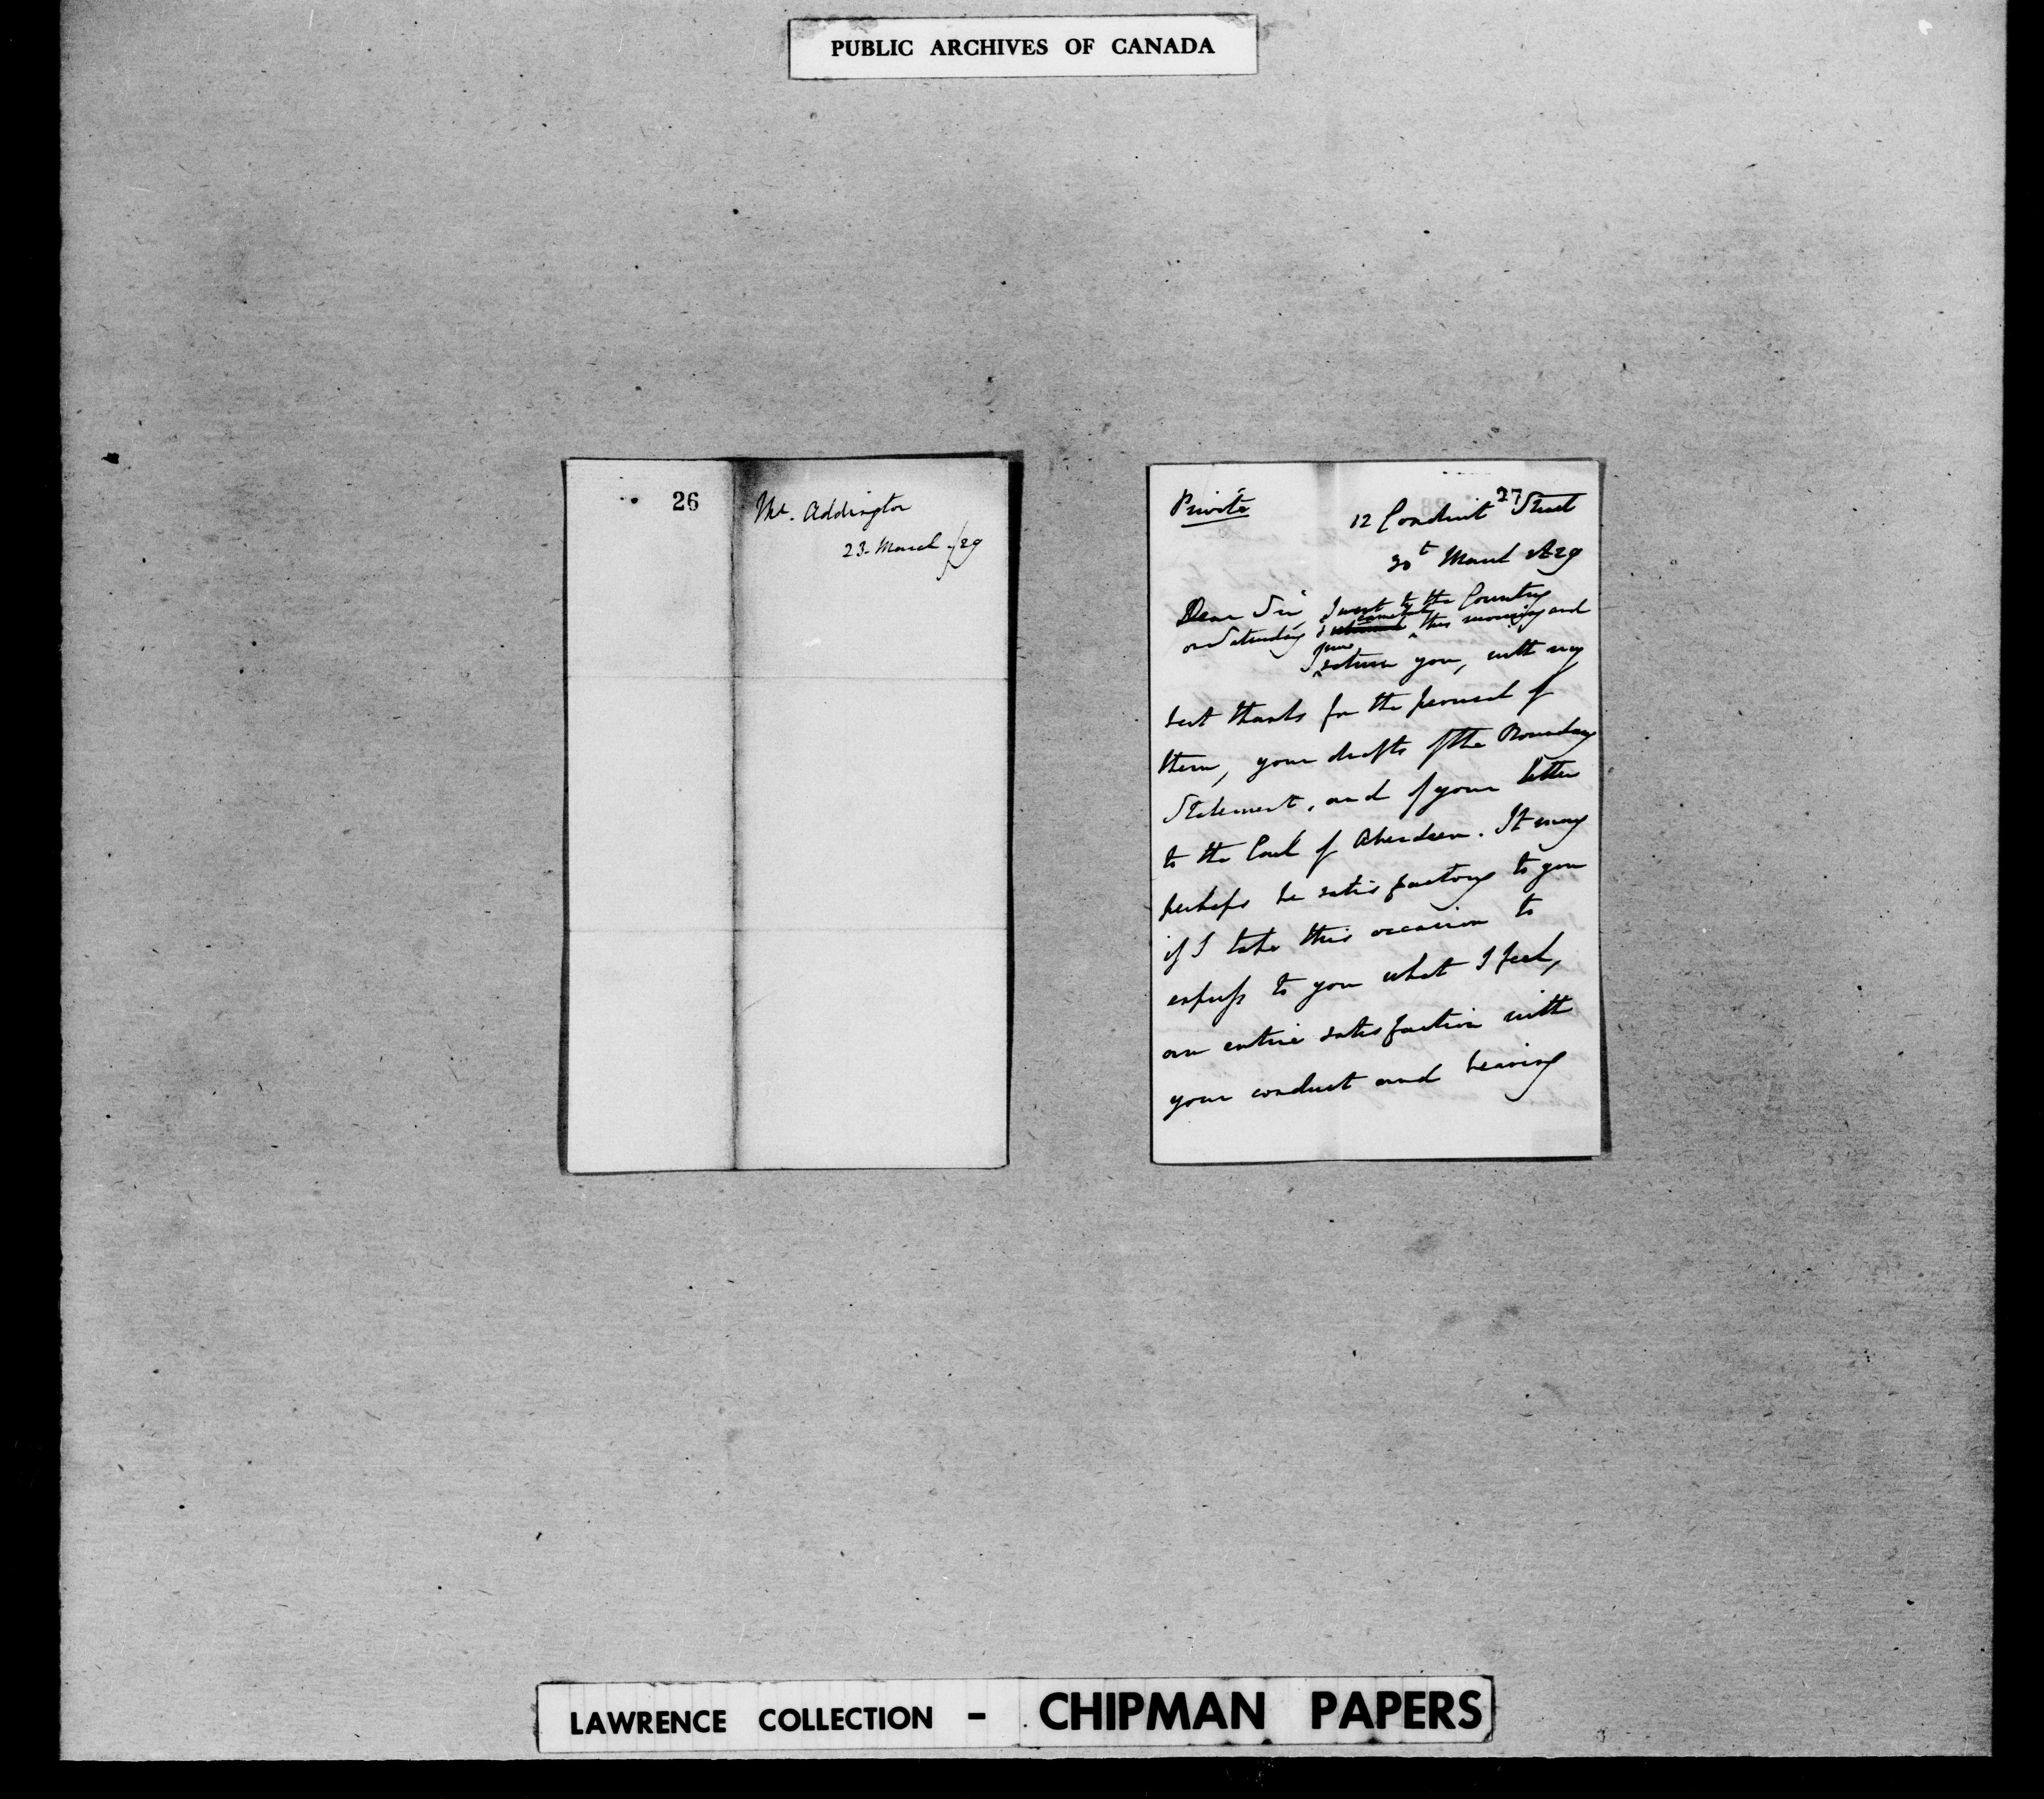 PUBLIC ARCHIVES OF CANADA
26
Mr. Addington
23. March /29
27
Private
12 Conduit Street
30t March 1829
Dear Sir, I went to the Country
on Saturday & this morning and
I now return you, with my
best thanks for the perusal of
them, your drafts of the Boundary
Statement, and of your letter
to the Earl of Aberdeen. It may
perhaps be satisfactory to you
if I take this occasion to
express to you what I feel,
an entire satisfaction with
your conduct and bearing
LAWRENCE COLLECTION - CHIPMAN PAPERS